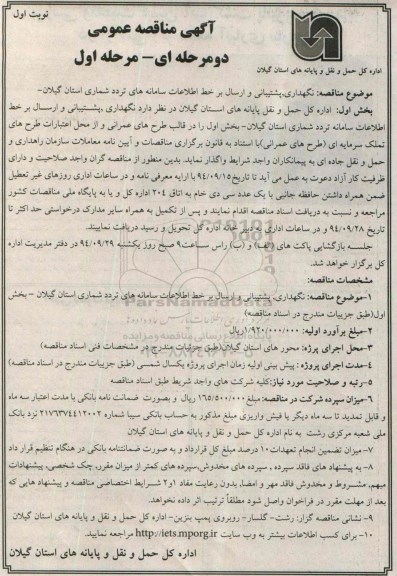 نوبت اول
آگهی مناقصه عمومی
دومرحله ای- مرحله اول
اداره کل حمل و نقل و پایانه های استان گیلان
موضوع مناقصه: نگهداری،پشتیبانی و ارسال بر خط اطلاعات سامانه های تردد شماری استان گیلان-
بخش اول: اداره کل حمل و نقل پایانه های استان گیلان در نظر دارد نگهداری ،پشتیبانی و ارسال بر خط
اطلاعات سامانه تردد شماری استان گیلان- بخش اول را در قالب طرح های عمرانی و از محل اعتبارات طرح های
تملک سرمایه ای (طرح های عمرانی)با استناد به قانون برگزاری مناقصات و آیین نامه معاملات سازمان راهداری و
حمل و نقل جاده ای به پیمانکاران واجد شرایط واگذار نماید. بدین منظور از مناقصه گران واجد صلاحیت و دارای
ظرفیت کار آزاد دعوت به عمل می آید تا تاریخ ۹۴/۰۹/۱۵ با ارایه معرفی نامه و در ساعات اداری روزهای غیر تعطیل
ضمن همراه داشتن حافظه جانبی با یک عدد سی دی خام به اتاق ۲۰۴ اداره کل و یا به پایگاه ملی مناقصات کشور
مراجعه و نسبت به دریافت اسناد مناقصه اقدام نمایند و پس از تکمیل به همراه سایر مدارک درخواستی حد اکثر تا
تاریخ ۹۴/۰۹/۲۸ و در ساعات اداری به دبیر خانه اداره کل تحویل و رسید دریافت نمایند.
جلسه بازگشایی پاکت های (الف) و (ب) راس ساعت ۹ صبح روز یکشنبه ۹۴/۰۹/۲۹ در دفتر مدیریت اداره
کل برگزار خواهد شد.
مشخصات مناقصه:
۱-موضوع مناقصه: نگهداری، پشتیبانی و ارسال بر خط اطلاعات سامانه های تردد شماری استان گیلان - بخش
اول(طبق جزییات مندرج در اسناد مناقصه)
۲-مبلغ برآورد اولیه: ۱/۹۲۰/۰۰۰/۰۰۰ریال
۳-محل اجرای پرژه: محور های استان گیلان(طبق جزئیات مندرج در مشخصات فنی اسناد مناقصه)
۴-مدت اجرای پروژه: پیش بینی اولیه زمان اجرای پروژه یکسال شمسی (طبق جزییات مندرج در اسناد مناقصه)
۵-رتبه و صلاحیت مورد نیاز:کلیه شرکت های واجد شریط طبق اسناد مناقصه
۶-میزان سپرده شرکت در مناقصه: مبلغ ۱۶۵/۵۰۰/۰۰۰ ریال و بصورت ضمانت نامه بانکی با مدت اعتبار سه ماه
و قابل تمدید تا سه ماه دیگر یا فیش واریزی مبلغ مذکور به حساب بانکی سیبا شماره ۲۱۷۶۳۷۴۴۱۲۰۰۲ نزد بانک
ملی شعبه مرکزی رشت به نام اداره کل حمل و نقل و پایانه های استان گیلان
۷-میزان تضمین انجام تعهدات ۱۰ درصد مبلغ کل قرارداد و به صورت ضمانتنامه بانکی در هنگام تنظیم قرار داد
۸- به پیشنهاد های فاقد سپرده ، سپرده های مخدوش،سپرده های کمتر از میزان مقرر، چک شخصی، پیشنهادات
مبهم، مشروط و مخدوش فاقد مهر و امضا، بدون رعایت مفاد ۱و۲ شرایط اختصاصی مناقصه و پیشنهاد هایی که
بعد از مهلت مقرر در فراخوان واصل شود مطلقاً ترتیب اثر داده نخواهد.
۹- نشانی مناقصه گزار: رشت- گلسار- روبروی پمپ بنزین- اداره کل حمل و نقل و پایانه های استان گیلان
۱۰- برای کسب اطلاعات بیشتر به وب سایت http://iets.mporg.ir مراجعه نمایید.
اداره کل حمل و نقل و پایانه های استان گیلان